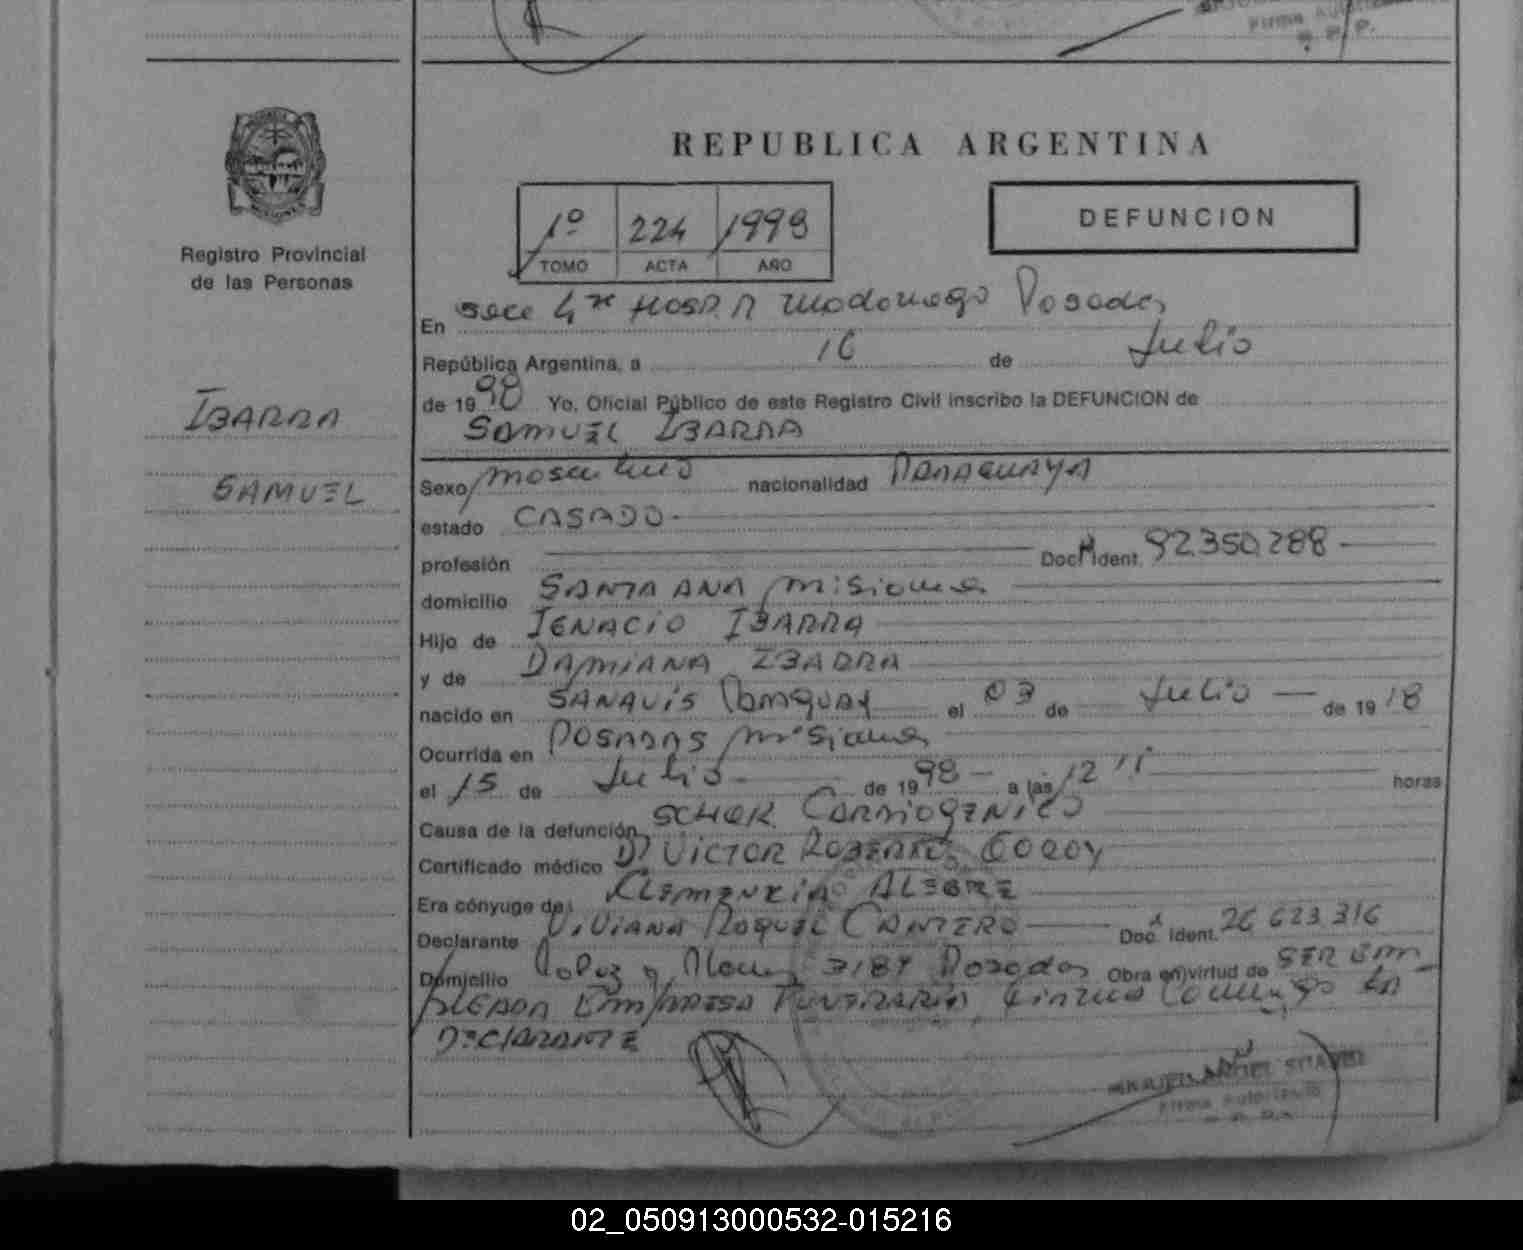 Firma Autorizada
R. P. P.
REPUBLICA ARGENTINA
1º 224 1998
TOMO ACTA AÑO
DEFUNCION
Registro Provincial
de las Personas
IBARRA
SAMUEL
En Secc 4ta Hosp. R Madariaga Posadas
República Argentina, a 16 de Julio
de 1998 Yo, Oficial Público de este Registro Civil inscribo la DEFUNCION de
SAMUEL IBARRA
Sexo masculino nacionalidad PARAGUAYA
estado CASADO
profesión Doc. Ident. 92.350.288
domicilio SANTA ANA misiones
Hijo de IGNACIO IBARRA
y de DAMIANA IBARRA
nacido en Paraguay el 03 de Julio de 1918
Ocurrida en POSADAS misiones
el 15 de Julio de 1998 a las 12 horas
Causa de la defunción SCHOK CARDIOGENICO
Certificado médico Dr VICTOR ROBERTO GODOY
Era cónyuge de: ALEGRE
Declarante VIVIANA RAQUEL CANTERO Doc. Ident. 26 623 316
Domicilio 3187 Posadas Obra en virtud de SER EM
PLEADA EMPRESA FUNERARIA, Firma Conmigo LA
DECLARANTE
Firma Autorizada
02_050913000532-015216